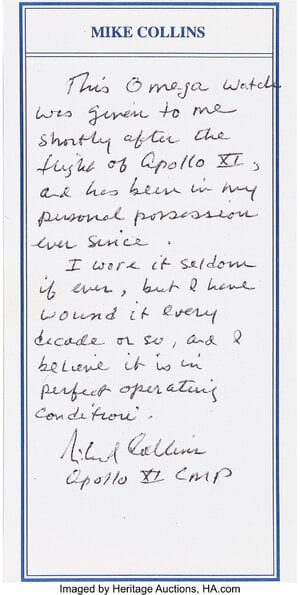 MIKE COLLINS
This Omega watch
was given to me
shortly after the
flight of Apollo XI,
and has been in my
personal possession
ever since.
I wore it seldom
if ever, but I have
wound it every
decade or so, and I
believe it is in
perfect operating
condition.
Michael Collins
Apollo XI CMP
Imaged by Heritage Auctions, HA.com